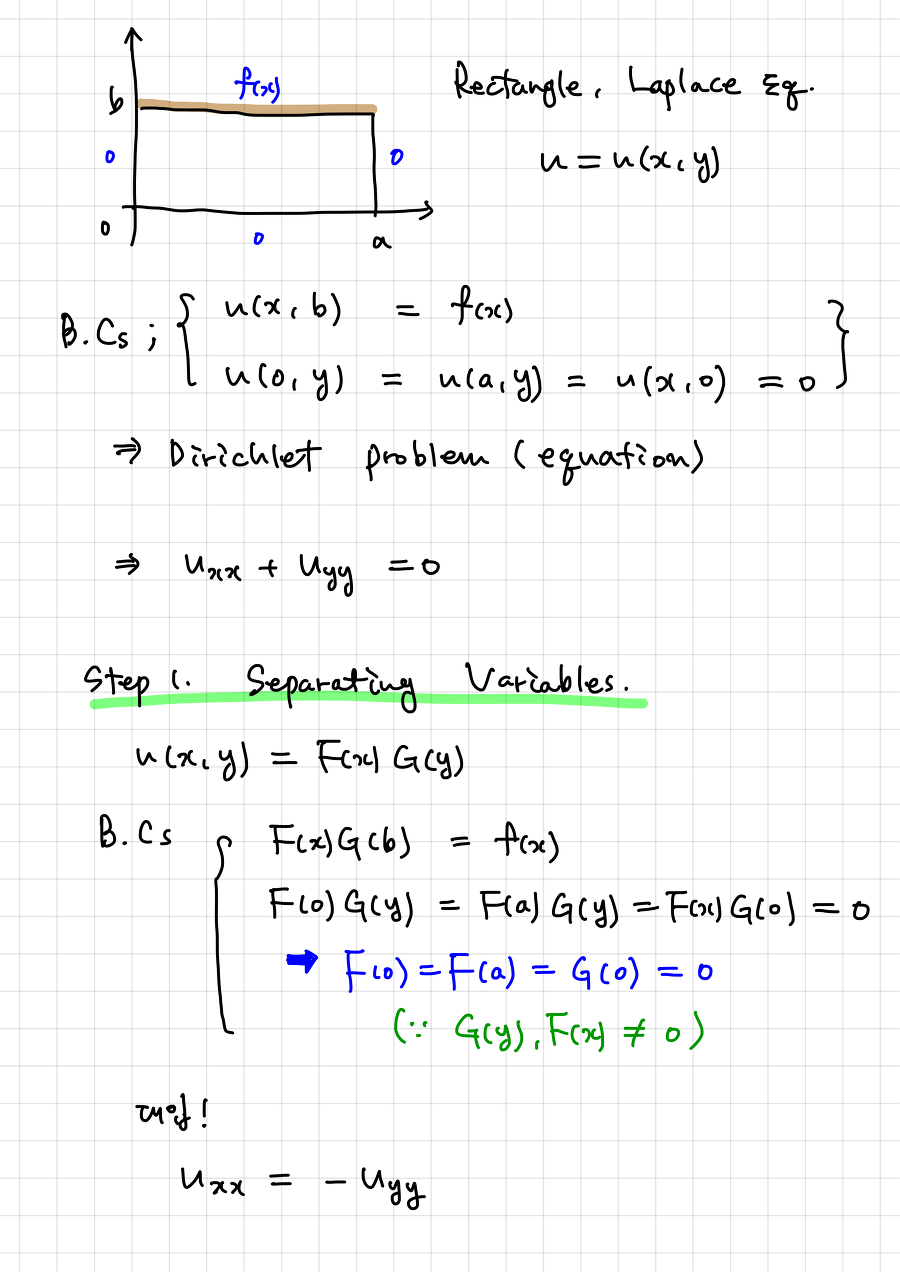 f(x)
b
0
0
0
0
a
Rectangle, Laplace Eq.
u = u(x, y)
B.Cs ; { u(x, b) = f(x)
u(0, y) = u(a, y) = u(x, 0) = 0 }
⇒ Dirichlet problem (equation)
⇒ u_xx + u_yy = 0
Step 1. Separating Variables.
u(x, y) = F(x) G(y)
B.Cs { F(x)G(b) = f(x)
F(0)G(y) = F(a)G(y) = F(x)G(0) = 0
➡ F(0) = F(a) = G(0) = 0
(∵ G(y), F(x) ≠ 0)
u_xx = - u_yy